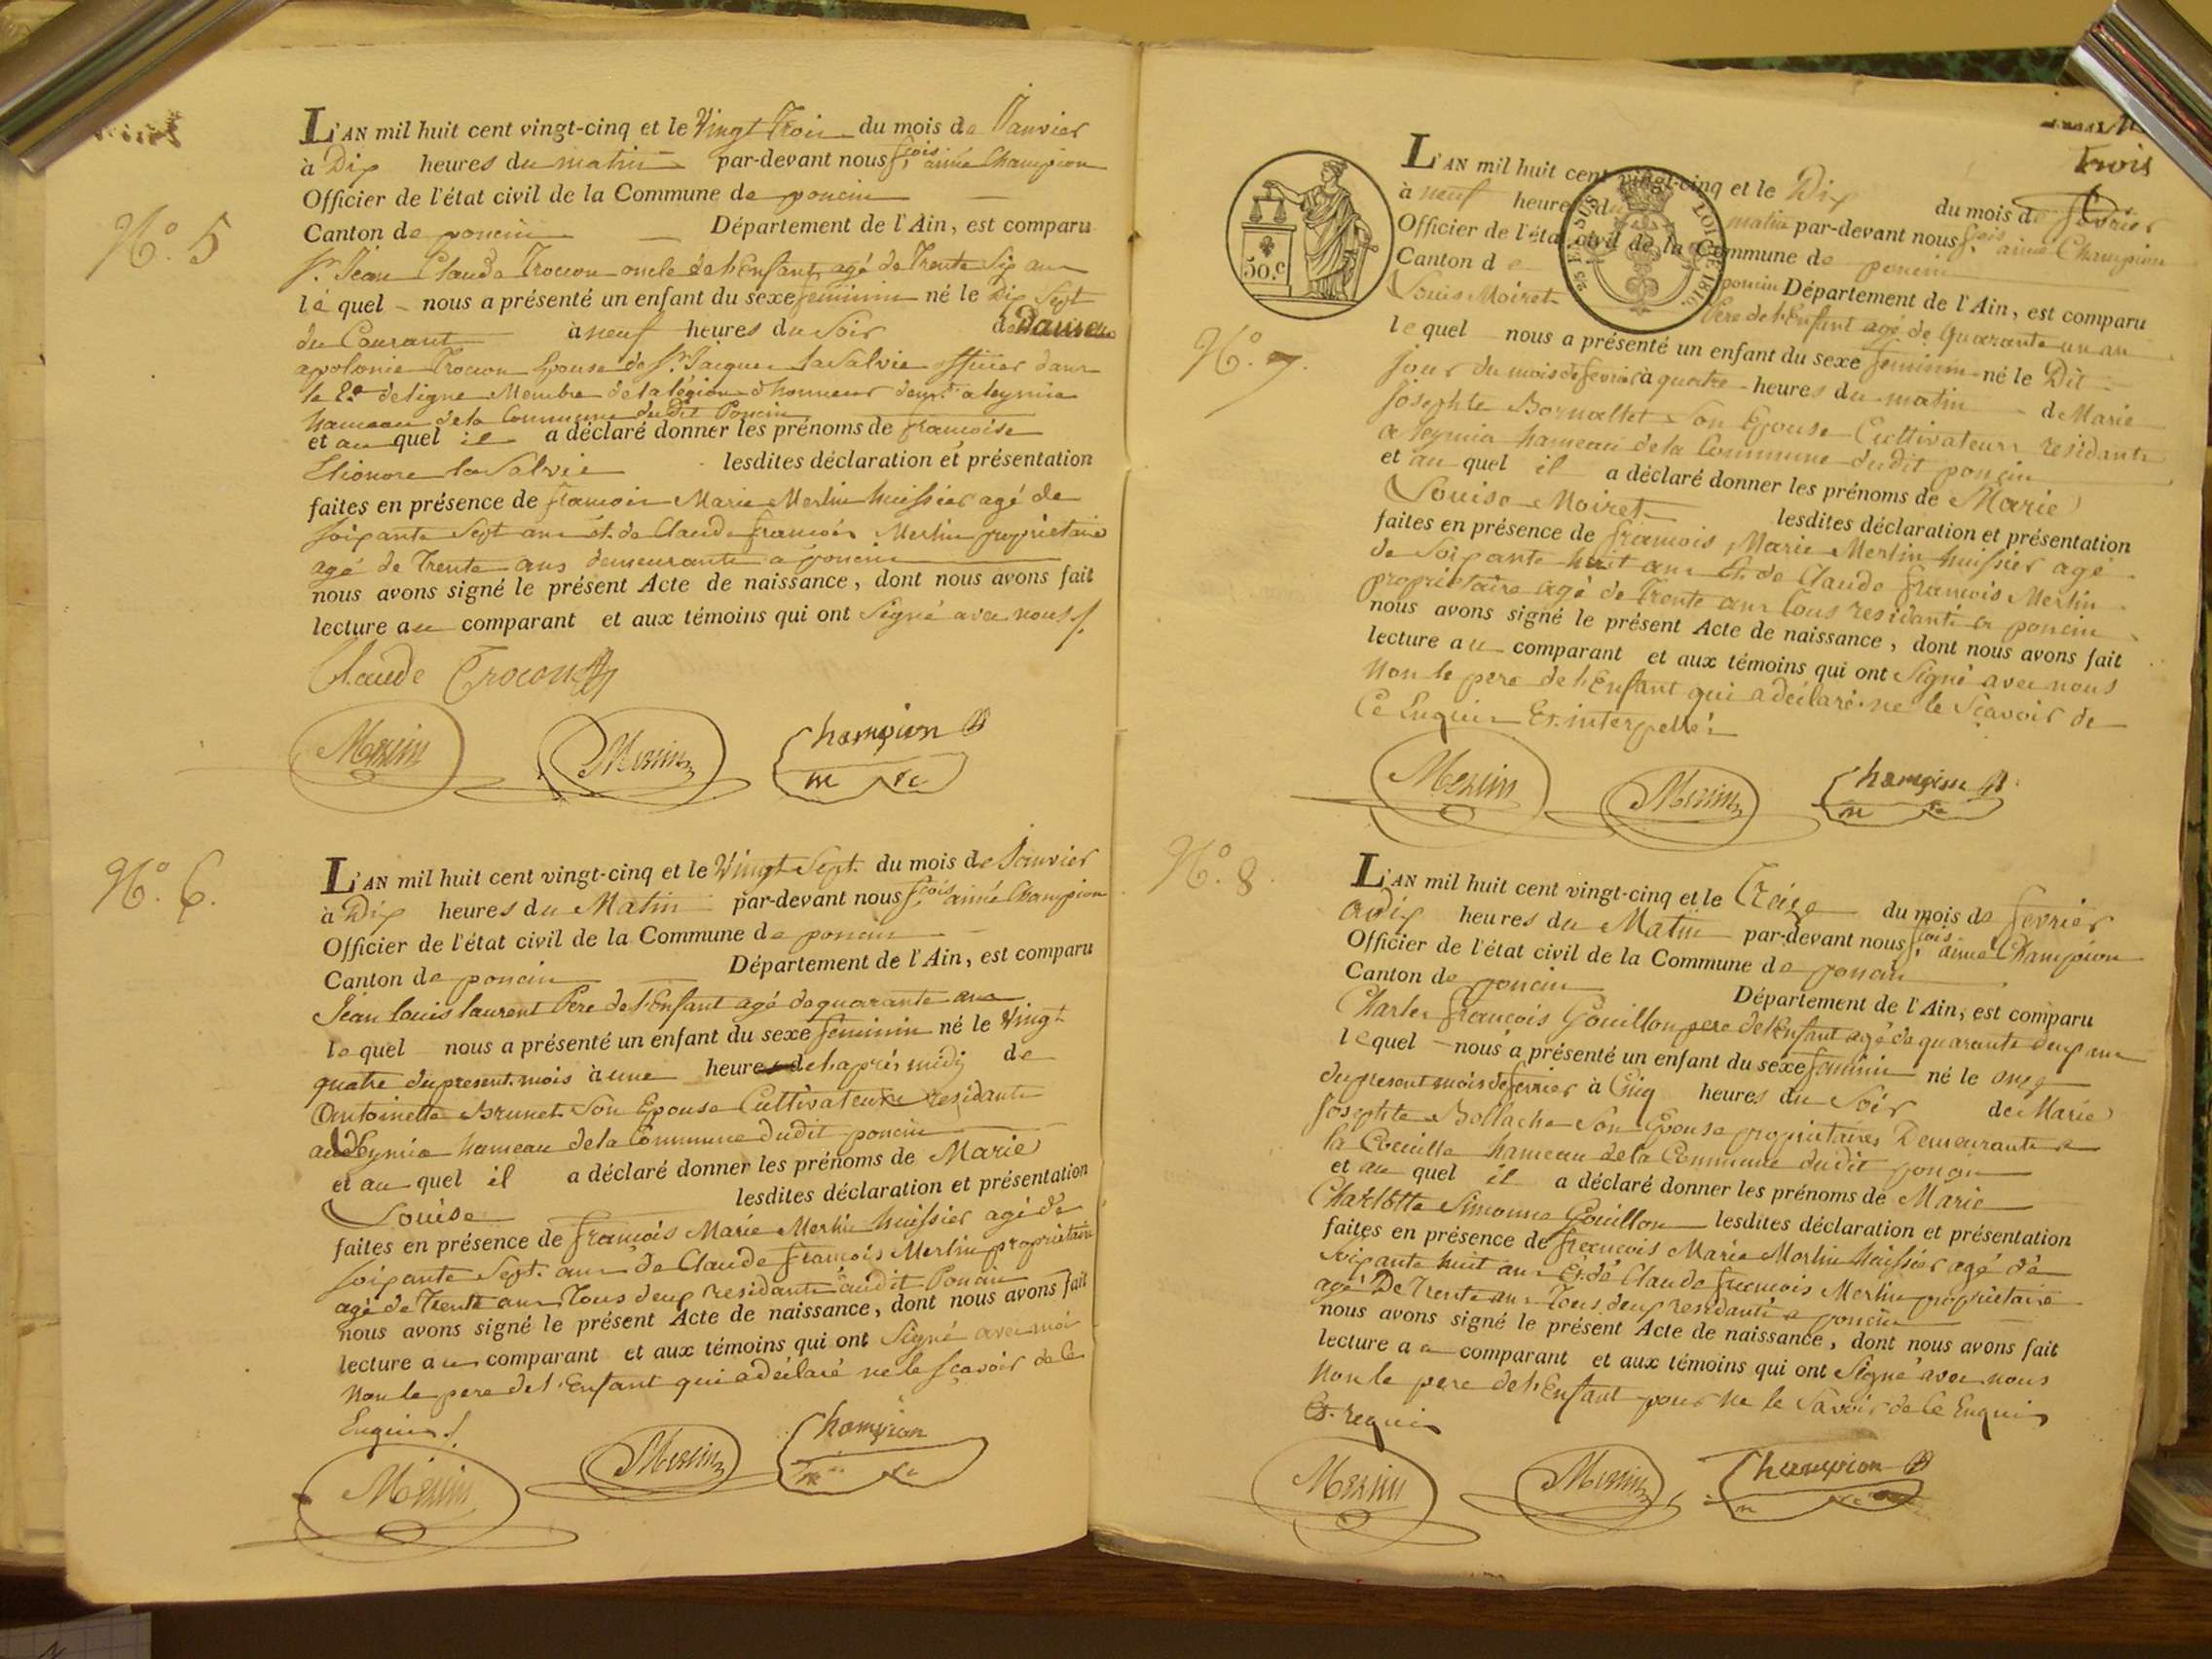 N.° 5
L'AN mil huit cent vingt-cinq et le Vingt Trois du mois de Janvier
à Dix heures du matin par-devant nous f.çois aimé Champion
Officier de l'état civil de la Commune de poncin
Canton de poncin Département de l'Ain, est comparu
S.r Jean Claude Trocon oncle de l'Enfant agé de Trente Six ans
le quel nous a présenté un enfant du sexe feminin né le Dix Sept
du Courant à neuf heures du Soir de
apolonie Trocon Epouse de S.r Jacques la Salvie officier dans
le 2.e de ligne Membre de la légion d'honneur demt. a leymia
hameau de la Commune du dit Poncin
et au quel il a déclaré donner les prénoms de francoise
Elionore la Salvie lesdites déclaration et présentation
faites en présence de francois Marie Merlin huissier agé de
soixante Sept ans et de Claude francois Merlin proprietaire
agé de Trente ans demeurants a poncin
nous avons signé le présent Acte de naissance, dont nous avons fait
lecture au comparant et aux témoins qui ont Signé avec nous
Claude Trocon
Merlin Merlin Champion
me re
N.° 6.
L'AN mil huit cent vingt-cinq et le Vingt Sept du mois de Janvier
à Dix heures du Matin par-devant nous f.çois aimé Champion
Officier de l'état civil de la Commune de poncin
Canton de poncin Département de l'Ain, est comparu
Jean louis laurent Pere de l'Enfant agé de quarante ans
le quel nous a présenté un enfant du sexe feminin né le Vingt
quatre du present mois à une heure de l'après midy de
Antoinette Brunet Son Epouse Cultivateurs residants
a Leymia hameau de la Commune dudit poncin
et au quel il a déclaré donner les prénoms de Marie
Louise lesdites déclaration et présentation
faites en présence de francois Marie Merlin huissier agé de
soixante Sept ans de Claude francois Merlin proprietaire
agé de Trente ans Tous deux residants audit Poncin
nous avons signé le présent Acte de naissance, dont nous avons fait
lecture au comparant et aux témoins qui ont Signé avec moi
Non le pere de l'Enfant qui a déclaré ne le sçavoir de ce
Enquis
Merlin Merlin Champion
m re
Trois
50.c
25 EN SUS LOI DE 1816
N.° 7.
L'AN mil huit cent vingt-cinq et le Dix du mois de fevrier
à neuf heures du matin par-devant nous f.çois aimé Champion
Officier de l'état civil de la Commune de poncin
Canton de poncin Département de l'Ain, est comparu
Louis Moiret Pere de l'Enfant agé de Quarante un an
le quel nous a présenté un enfant du sexe feminin né le Dit
jour du mois de fevrier à quatre heures du matin de Marie
Josephte Bornallet Son Epouse Cultivateurs residants
a leymia hameau de la Commune dudit poncin
et au quel il a déclaré donner les prénoms de Marie
Louise Moiret lesdites déclaration et présentation
faites en présence de francois Marie Merlin huissier agé
de Soixante huit ans Et de Claude francois Merlin
proprietaire agé de Trente ans Tous residants a poncin
nous avons signé le présent Acte de naissance, dont nous avons fait
lecture au comparant et aux témoins qui ont Signé avec nous
Non le pere de l'Enfant qui a déclaré ne le Sçavoir de
Ce Enquis Et interpellé
Merlin Merlin Champion
m re
N.° 8
L'AN mil huit cent vingt-cinq et le Treize du mois de fevrier
a Dix heures du Matin par-devant nous f.çois aimé Champion
Officier de l'état civil de la Commune de poncin
Canton de poncin Département de l'Ain, est comparu
Charles francois Gouillon pere de l'Enfant agé de quarante deux ans
le quel nous a présenté un enfant du sexe feminin né le onze
du present mois de fevrier à Cinq heures du Soir de Marie
Josephte Bollache Son Epouse proprietaires Demeurants a
la Coeuille hameau de la Commune dudit poncin
et au quel il a déclaré donner les prénoms de Marie
Charlotte Simonne Gouillon lesdites déclaration et présentation
faites en présence de francois Marie Merlin huissier agé de
Soixante huit ans Et de Claude francois Merlin proprietaire
agé De Trente ans Tous deux residants a poncin
nous avons signé le présent Acte de naissance, dont nous avons fait
lecture au comparant et aux témoins qui ont Signé avec nous
Non le pere de l'Enfant pour ne le Savoir de ce Enquis
Et requis
Merlin Merlin Champion
m re